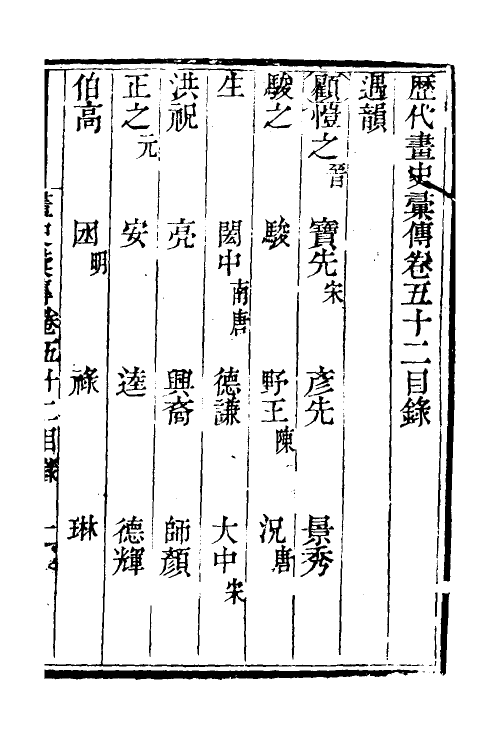 歷代畫史彙傳卷五十二目錄
遇韻
顧愷之晉 寶先宋 彥先 景秀
駿之 駿 野王陳 況唐
生 閎中南唐 德謙 大中宋
洪祝 亮 興裔 師顏
正之元 安 逵 德輝
伯高 囦明 祿 琳
畫史彙傳卷五十二目錄